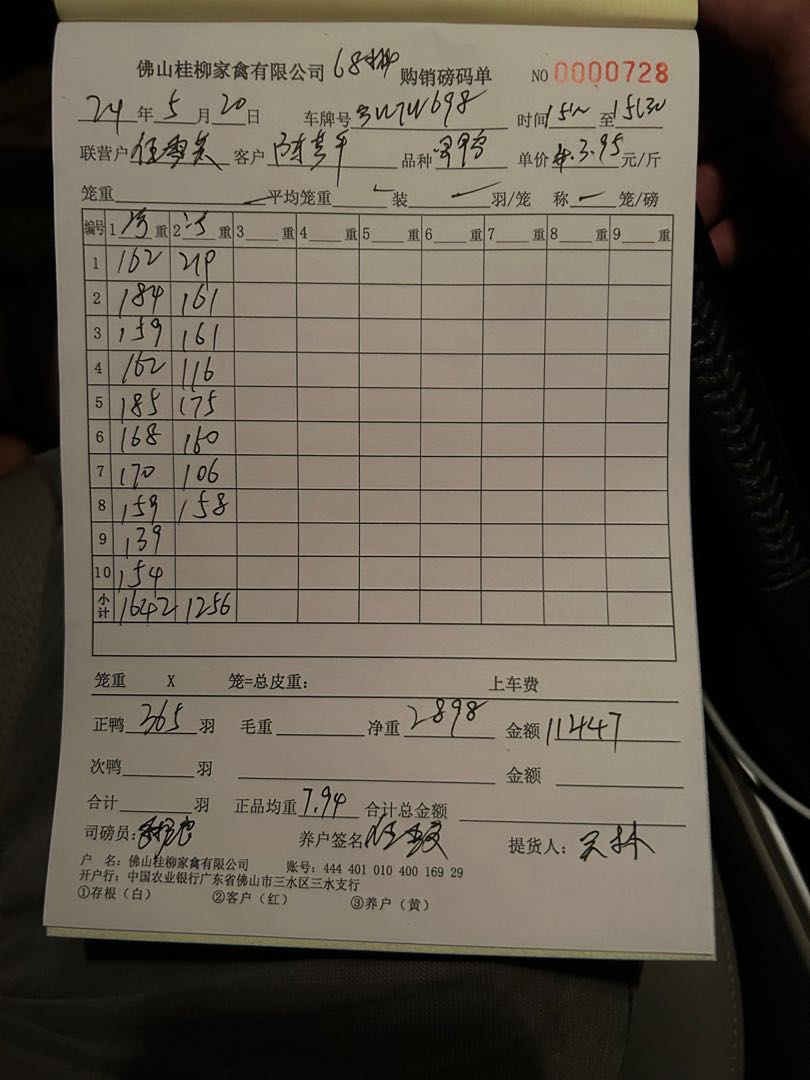 佛山桂柳家禽有限公司 购销磅码单 NO 0000728
24 年 5 月 20 日 车牌号 时间 至
联营户 客户 品种 单价 3.95 元/斤
笼重 平均笼重 装 羽/笼 称 笼/磅
编号 1 净 重 2 净 重 3 重 4 重 5 重 6 重 7 重 8 重 9 重
1 162 219
2 184 161
3 159 161
4 162 116
5 185 175
6 168 160
7 170 106
8 159 158
9 139
10 154
小计 1642 1256
笼重 X 笼=总皮重: 上车费
正鸭 365 羽 毛重 净重 2898 金额 11447
次鸭 羽 金额
合计 羽 正品均重 7.94 合计总金额
司磅员: 养户签名 提货人:
户 名: 佛山桂柳家禽有限公司 账号: 444 401 010 400 169 29
开户行: 中国农业银行广东省佛山市三水区三水支行
①存根（白） ②客户（红） ③养户（黄）